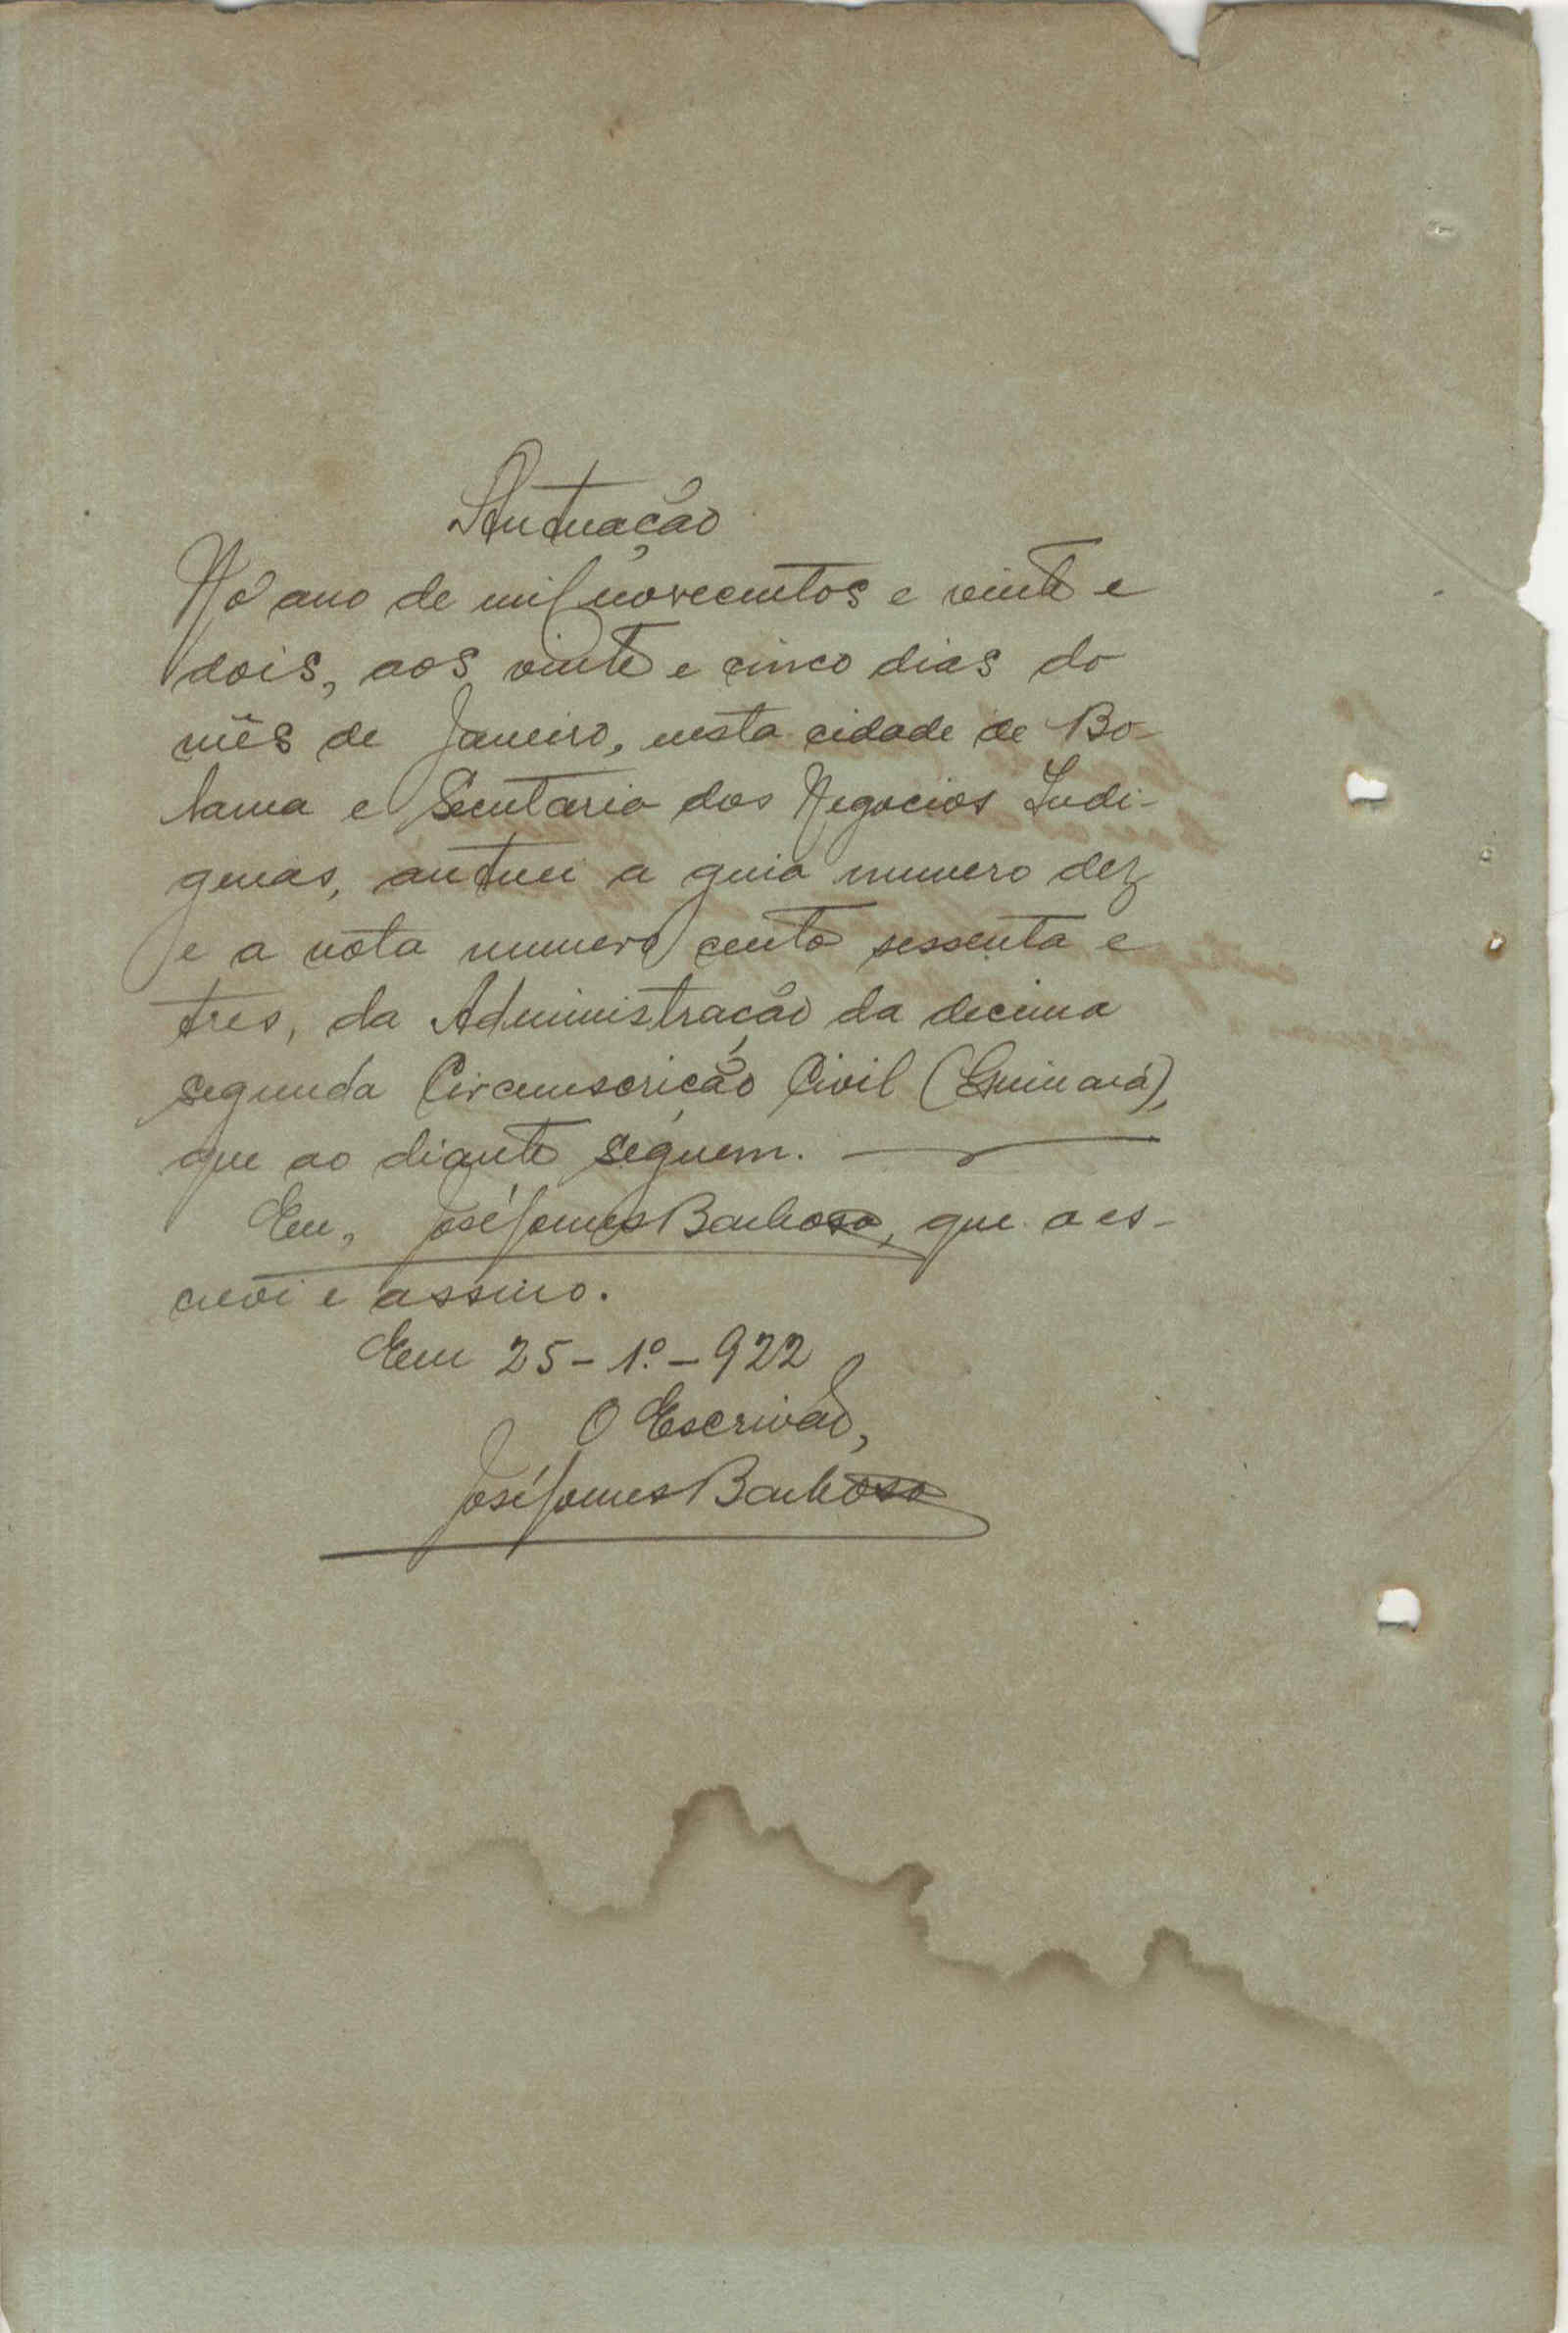 Autuação
No ano de mil novecentos e vinte e
dois, aos vinte e cinco dias do
mês de Janeiro, nesta cidade de Bo-
lama e Secretaria dos Negocios Indi-
genas, autuei a guia numero dez
e a nota numero cento sessenta e
tres, da Administração da decima
segunda Circunscrição Civil (Quinará),
que ao diante seguem.
Eu, José Gomes Barbosa, que o es-
crevi e assino.
Em 25-1º-922
O Escrivão,
José Gomes Barbosa